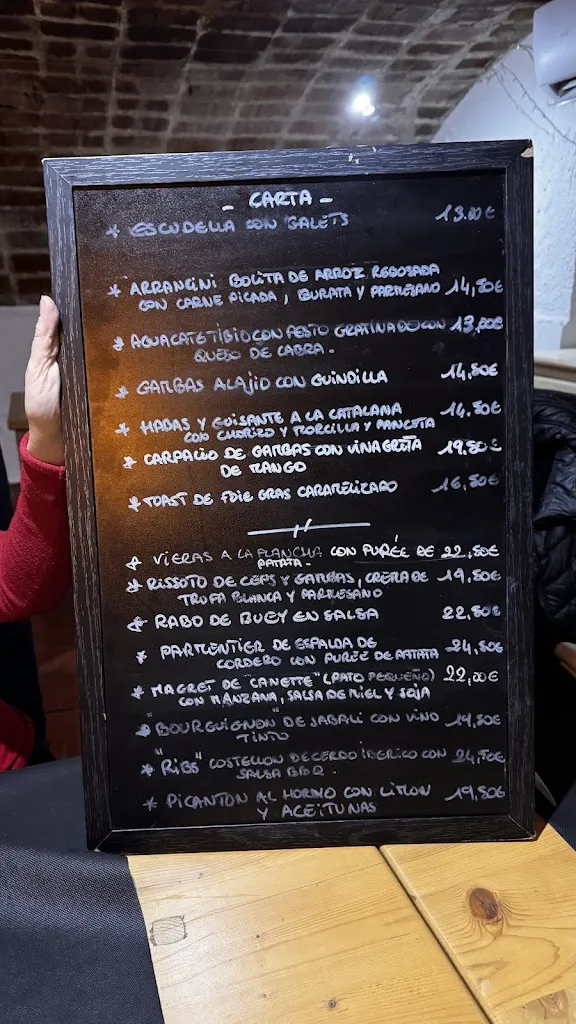 - CARTA -
* ESCUDELLA CON GALETS 13.00€
* ARRANCINI BOLITA DE ARROZ REBOSADA 14,50€
CON CARNE PICADA, BURATA Y PARMESANO
* AGUACATE TIBIO CON PESTO GRATINADO CON 13,00€
QUESO DE CABRA.
* GAMBAS ALAJIO CON GUINDILLA 14,50€
* HABAS Y GUISANTE A LA CATALANA 14.50€
CON CHORIZO Y MORCILLA Y PANCETA
* CARPACIO DE GAMBAS CON VINAGRETA 19,50€
DE MANGO
* TOAST DE FOIE GRAS CARAMELIZADO 16,50€
* VIERAS A LA PLANCHA CON PURÉE DE 22,50€
PATATA.
* RISSOTO DE CEPS Y GAMBAS, CREMA DE 19,50€
TRUFA BLANCA Y PARMESANO
* RABO DE BUEY EN SALSA 22,50€
* PARMENTIER DE ESPALDA DE 24,50€
CORDERO CON PURÉE DE PATATA
* MAGRET DE "CANETTE" (PATO PEQUEÑO) 22,00€
CON MANZANA, SALSA DE MIEL Y SOJA
* "BOURGUIGNON" DE JABALI CON VINO 19,50€
TINTO
* "RIBS" COSTELLON DE CERDO IBERICO CON 24,50€
SALSA BBQ.
* PICANTON AL HORNO CON LIMON 19,50€
Y ACEITUNAS